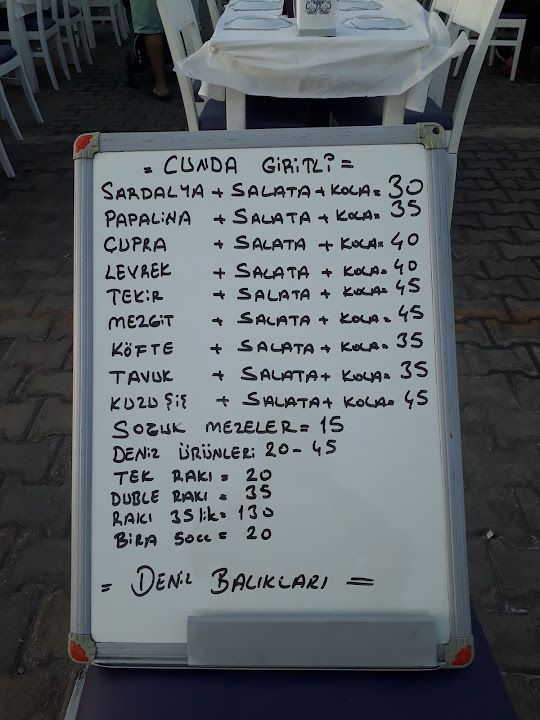 = CUNDA GİRİTLİ =
SARDALYA + SALATA + KOLA = 30
PAPALİNA + SALATA + KOLA = 35
ÇUPRA + SALATA + KOLA = 40
LEVREK + SALATA + KOLA = 40
TEKİR + SALATA + KOLA = 45
MEZGİT + SALATA + KOLA = 45
KÖFTE + SALATA + KOLA = 35
TAVUK + SALATA + KOLA = 35
KUZU ŞİŞ + SALATA + KOLA = 45
SOĞUK MEZELER = 15
DENİZ ÜRÜNLERİ 20 - 45
TEK RAKI = 20
DUBLE RAKI = 35
RAKI 35lik = 130
BİRA 50cc = 20
= DENİZ BALIKLARI =